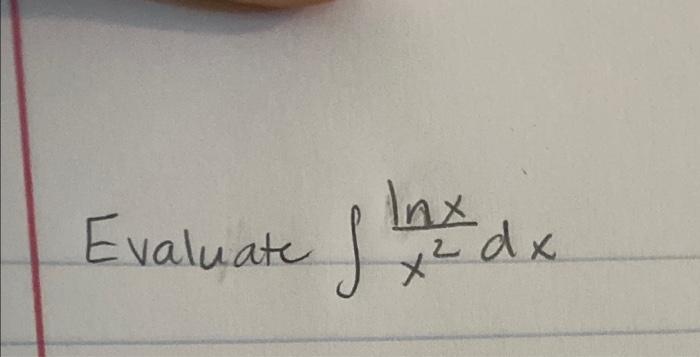 Evaluate ∫ lnx/x² dx